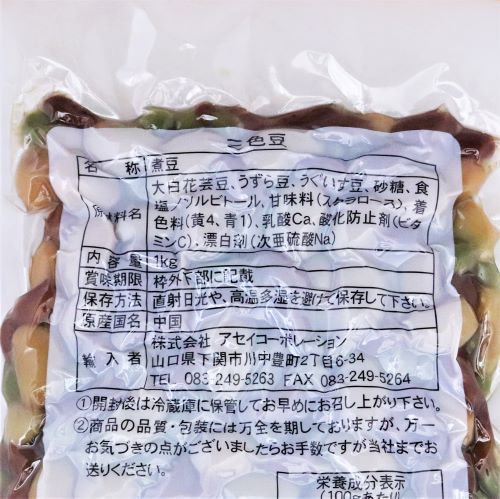 三色豆
名称 煮豆
大白花芸豆、うずら豆、うぐいす豆、砂糖、食
原材料名 塩/ソルビトール、甘味料(スクラロース)、着
色料(黄4、青1)、乳酸Ca、酸化防止剤(ビタ
ミンC)、漂白剤(次亜硫酸Na)
内容量 1kg
賞味期限 枠外下部に記載
保存方法 直射日光や、高温多湿を避けて保存して下さい。
原産国名 中国
株式会社 アセイコーポレーション
輸入者 山口県下関市川中豊町2丁目6-34
TEL 083-249-5263 FAX 083-249-5264
①開封後は冷蔵庫に保管してお早めにお召し上がり下さい。
②商品の品質・包装には万全を期しておりますが、万一
お気づきの点がございましたらお手数ですが当社までお
送りください。
栄養成分表示
(100gあたり)